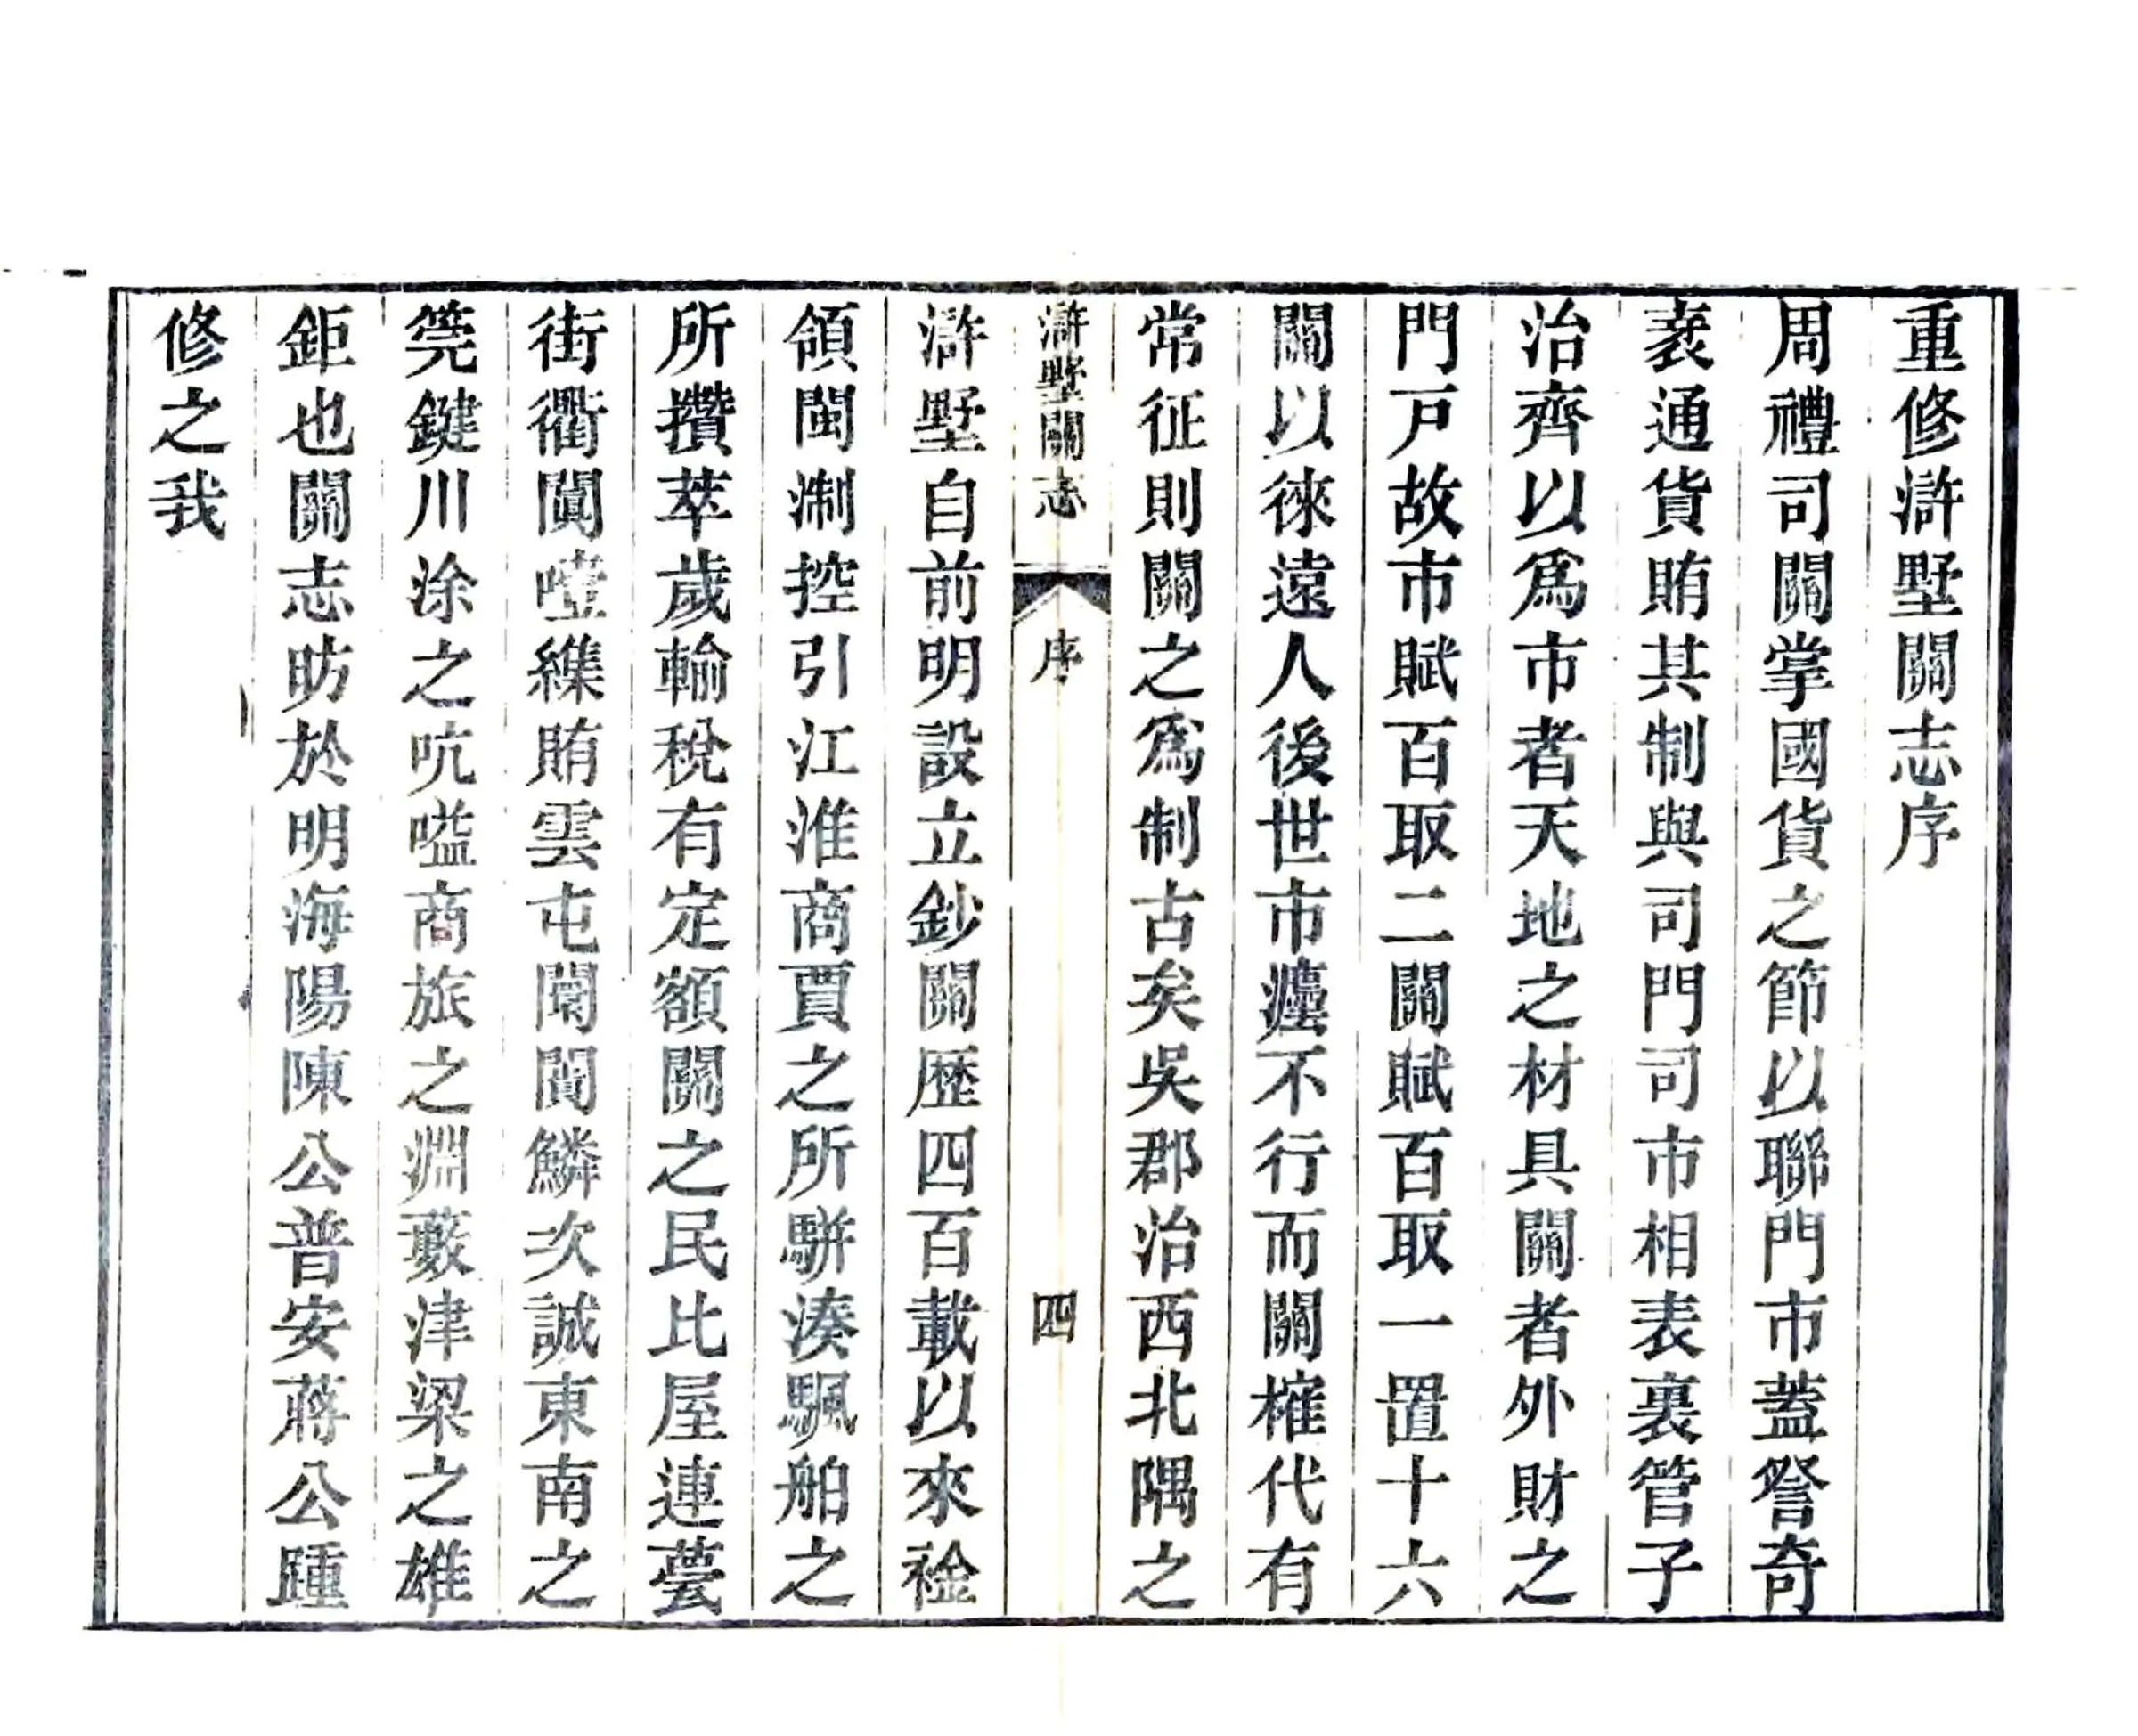 重修滸墅關志序
周禮司關掌國貨之節以聯門市蓋詧奇
衺通貨賄其制與司門司市相表裏管子
治齊以爲市者天地之材具關者外財之
門戸故市賦百取二關賦百取一置十六
關以徠遠人後世市廛不行而關榷代有
常征則關之爲制古矣吳郡治西北隅之
滸墅關志
序
四
滸墅自前明設立鈔關歷四百載以來襟
領閩淛控引江淮商賈之所駢湊颿舶之
所攢萃歲輸稅有定額關之民比屋連甍
街衢闐噎纀賄雲屯闤闠鱗次誠東南之
筦鍵川涂之吭嗌商旅之淵藪津梁之雄
鉅也關志昉於明海陽陳公普安蔣公踵
修之我